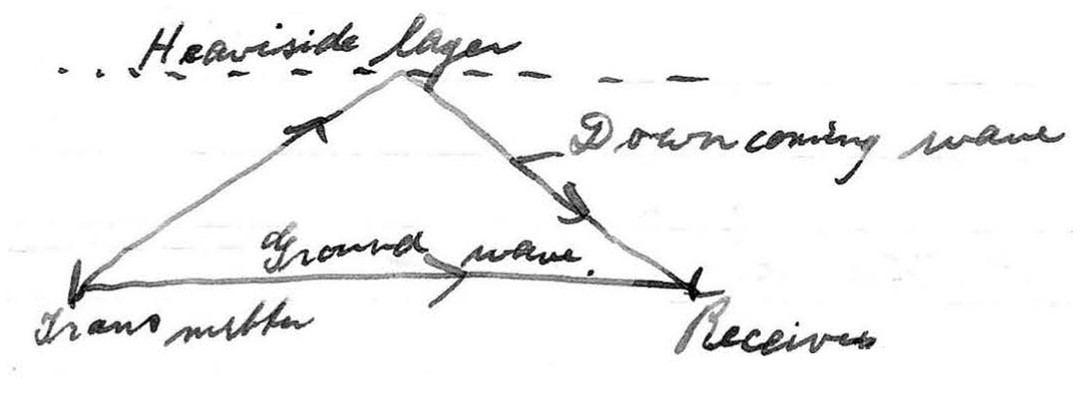 Heaviside layer
Downcoming wave
Ground wave.
Transmitter
Receiver